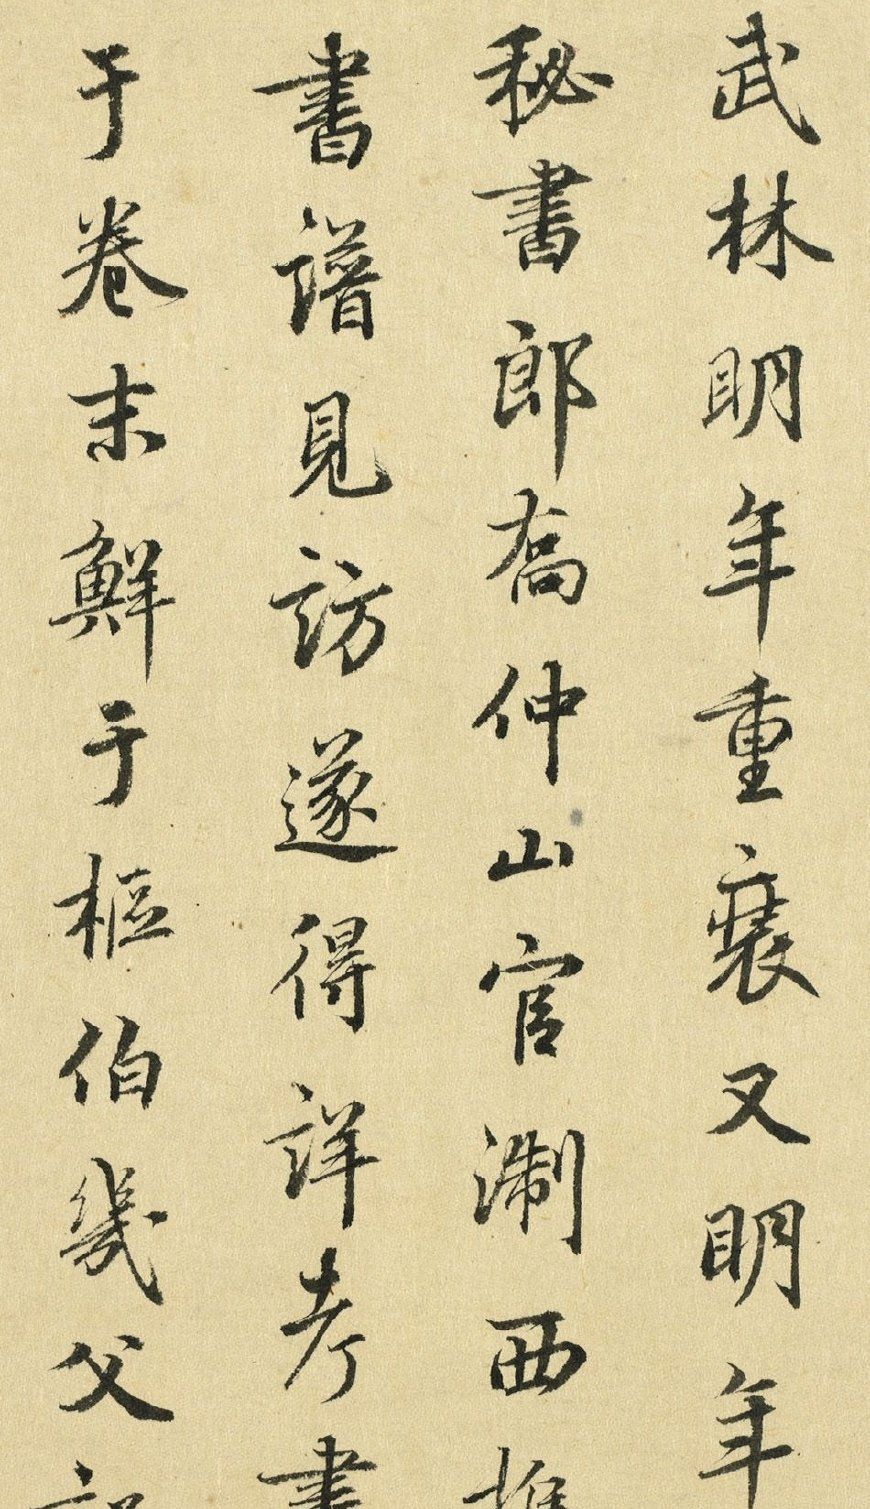 武林明年重裝又明年
秘書郎喬仲山官淛西
書譜見訪遂得詳考書
于卷末鮮于樞伯幾父